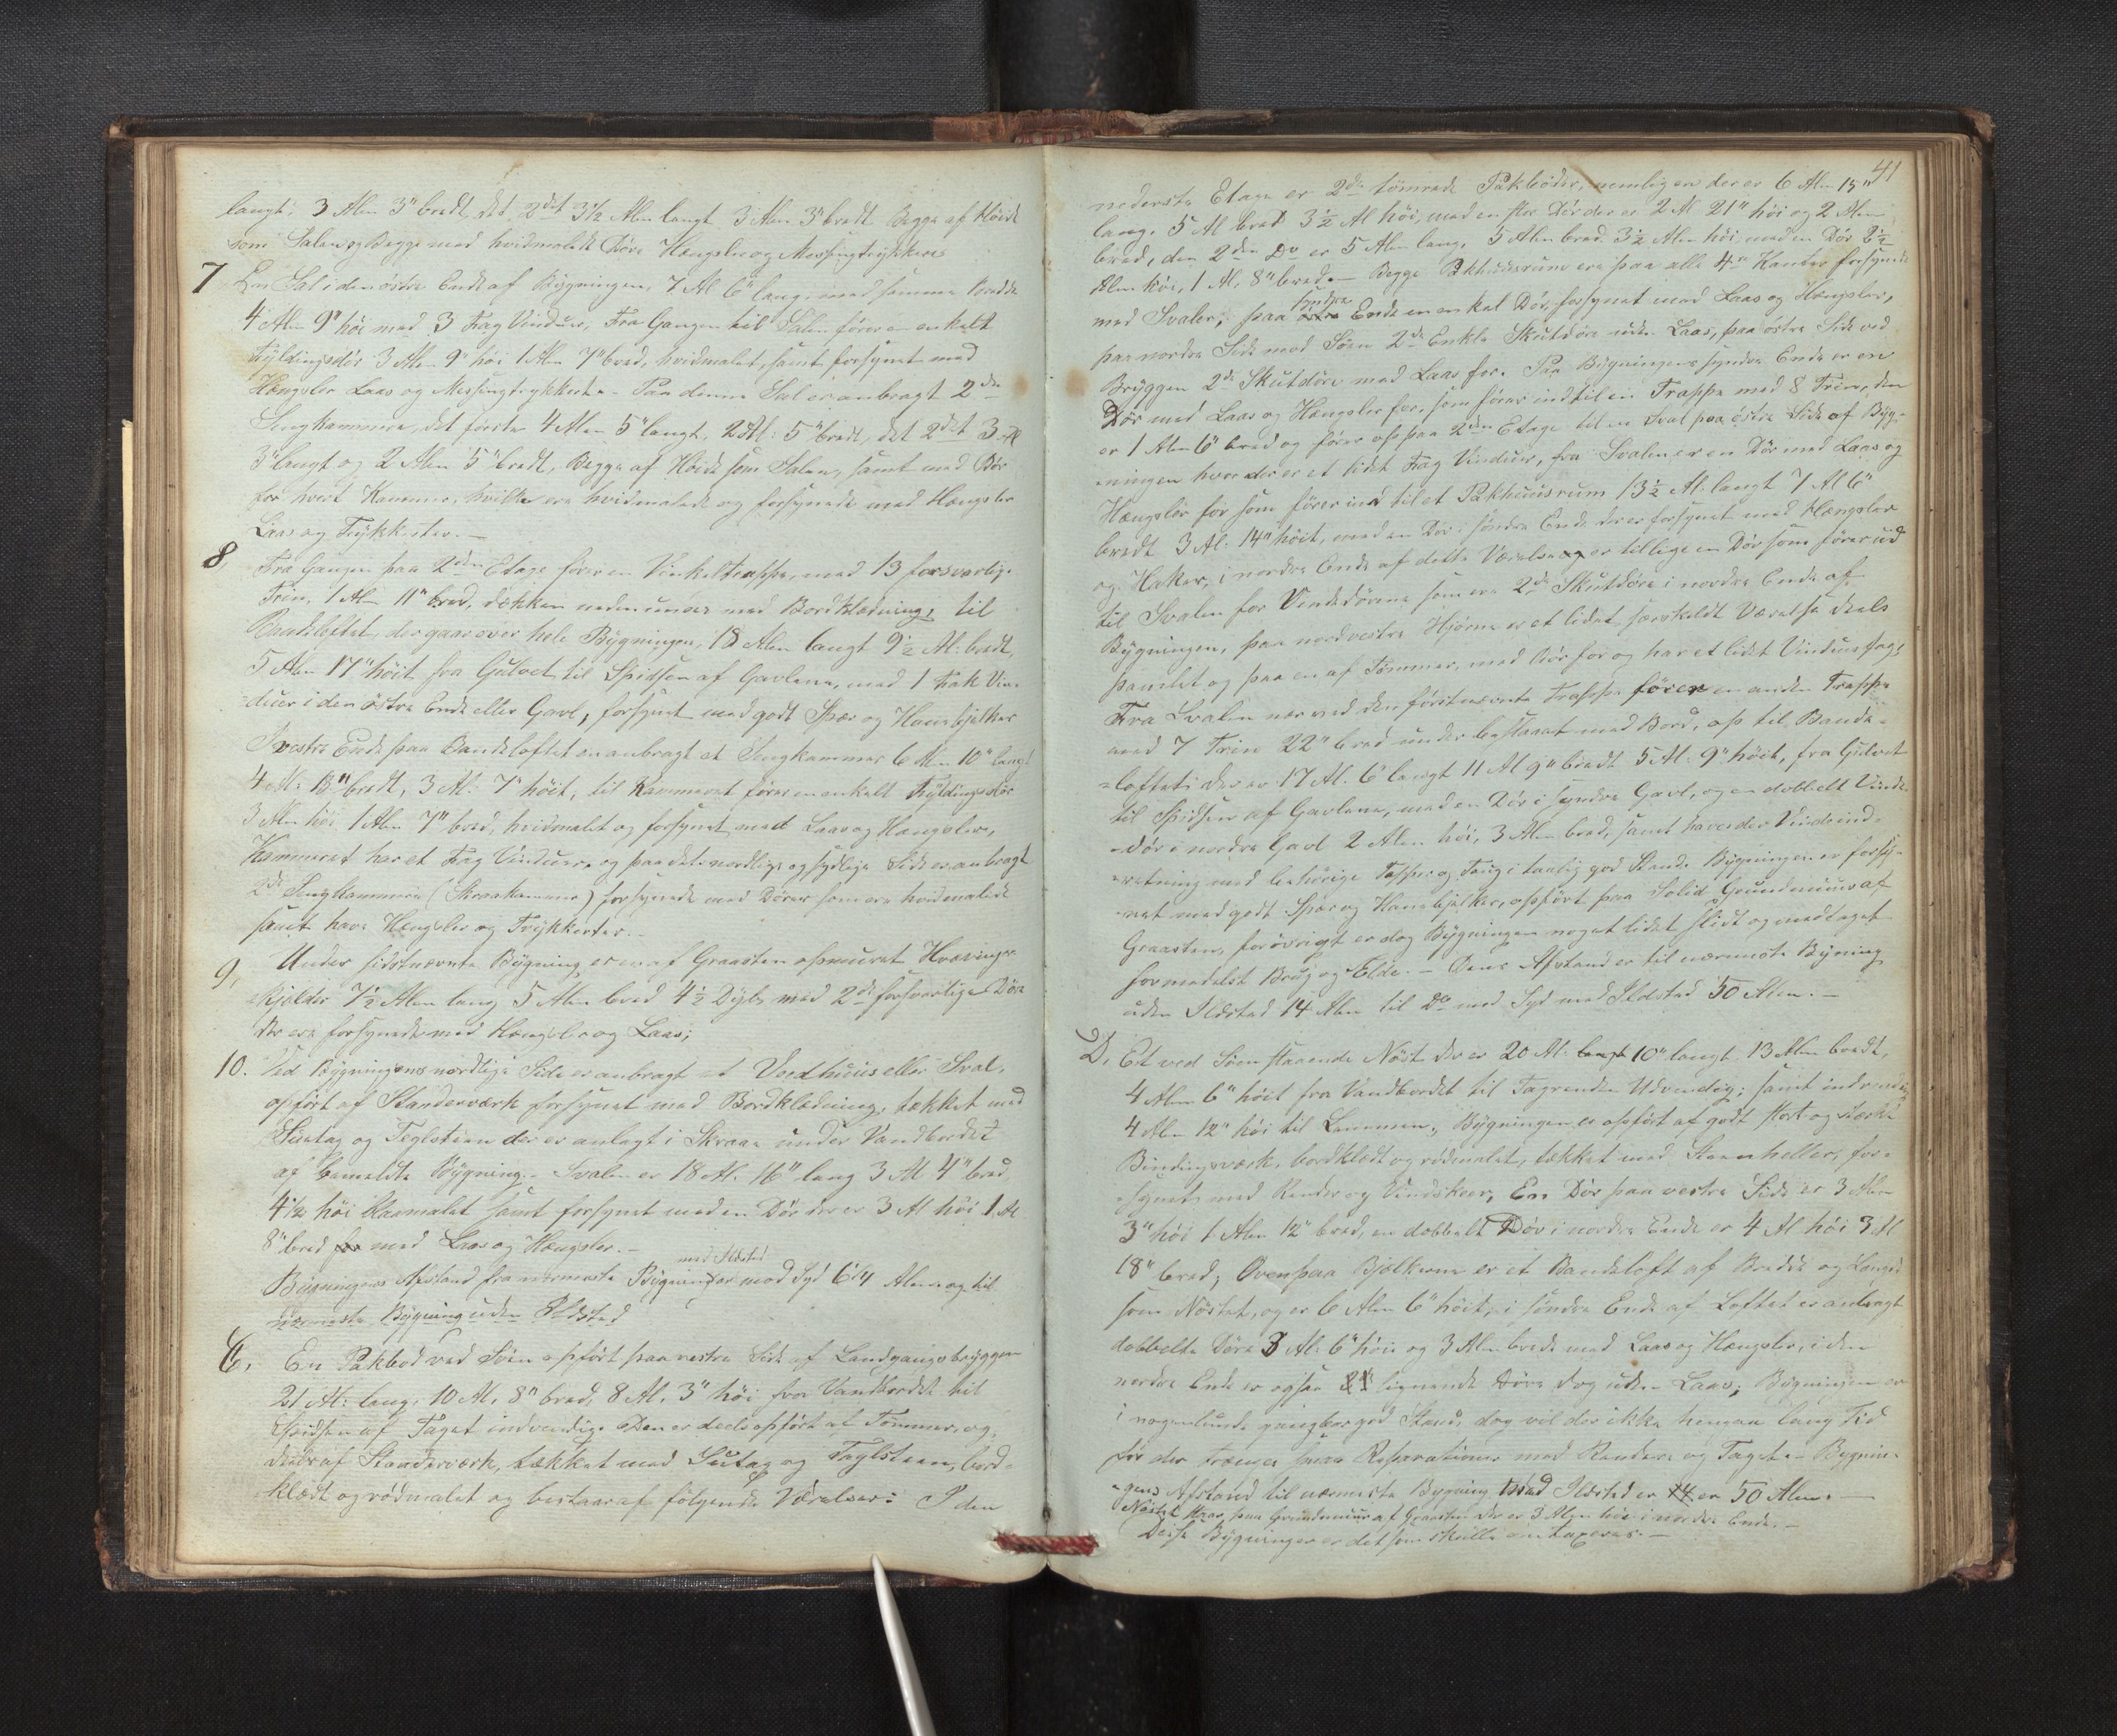 langt, 3 Alen 3" bredt, det 2det 3½ Alen langt 3 Alen 3" bredt Begge af Höide
som Salen og Begge med hvidmalede Döre Hængsler og Messingtrykkere
7 En Sal i den östre Ende af Bygningen, 7 Al 6" lang med samme Bredde
4 Alen 9" höi med 3 Fag Vinduer, Fra Gangen til Salen förer en enkelt
Fyldingsdör 3 Alen 9" höi 1 Alen 7" bred, hvidmalet, samt forsynet med
Hængsler Laas og Messingtrykkert.- Paa denne Sal er anbragt 2de
Sengkammere, det förste 4 Alen 5" langt, 2 Al: 5" bredt, det 2det 3 Al
3" langt og 2 Alen 5" bredt, Begge af Höide som Salen, samt med Dör
for hvert Kammer, hvilke ere hvidmalede og forsynede med Hængsler
Laas og Trykkerter.-
8, Fra Gangen paa 2den Etage förer en Vinkeltrappe, med 13 forsvarlige
Trin, 1 Alen 11" bred, dækken nedenunder med Bordklædning, til
Bandeloftet, der gaar over hele Bygningen, 18 Alen langt 9½ Al: bredt,
5 Alen 17" höit fra Gulvet til Spidsen af Gavlene, med 1 Fak Vin-
duer i den östre Ende eller Gavl, forsynet med godt Spær og Hanebjelker
I vestre Ende paa Bandeloftet er anbragt et Sengkammer 6 Alen 10" langt
4 Al: 13" bredt, 3 Al: 7" höit, til Kammeret förer en enkelt Fyldingsdör
3 Alen höi 1 Alen 7" bred, hvidmalet og forsynet med Laas og Hængsler,
Kammeret har et Fag Vinduer, og paa dets nordlige og sydlige Side er anbragt
2de Sengkammere (Skraakamme) forsynede med Dörer som ere hvidmalede
samt have Hængsler og Trykkerter.-
9, Under sidstnævnte Bygning er en af Graasten opmuret Hvælvings-
kjelder 7½ Alen lang 5 Alen bred 4½ Dyb, med 2de forsvarlige Döre
der ere forsynede med Hængsler og Laas;
10. Ved Bygningens nordlige Side er anbragt et Vedhuus eller Sval,
opfört af Standerværk forsynet med Bordklædning, tækket med
Suetag og Teglsteen der er anlagt i Skraae under Vandbordet
af bemeldte Bygning.- Svalen er 18 Al. 16" lang 3 Al 4" bred,
4½ höi Umalet samt forsynet med en Dör der er 3 Al höi 1 Al
8" bred for med Laas og Hængsler.-
med Ildsted
Bygningens Afstand fra nærmeste Bygninger mod Syd 6¼ Alen og til
nærmeste Bygning uden Ildsted
C, En Pakbod ved Söen opfört paa vestre Side af Landgangsbryggen
21 Al: lang, 10 Al, 8" bred, 8 Al. 3" höi fra Vandbordet til
Spidsen af Taget indvendig. Den er deels opfört af Tömmer, og
deels af Standerværk, tækket med Suetag og Teglsteen, bord-
klædt og rödmalet og bestaar af fölgende Værelser: I den
41
nederste Etage er 2de tömrede Pakboder, nemlig en der er 6 Alen 15"
lang, 5 Al bred 3½ Al höi, med en stor Dör der er 2 Al 21" höi og 2 Alen
bred, den 2den Do er 5 Alen lang, 5 Alen bred 3½ Alen höi, med en Dör 2½
Alen höi, 1 Al, 8" bred.- Begge Pakhuusrum ere paa alle 4re Kanter forsynede
söndre
med Svaler, paa östre Ende en enkel Dör, forsynet med Laas og Hængsler,
paa nordre Side mod Söen 2de Enkle Skutdöre uden Laas, paa östre Side ved
Bryggen 2de Skutdöre med Laas for. Paa Bygningens syndre Ende er en
Dör med Laas og Hængsler for, som förer ind til en Trappe med 8 Trin, den
er 1 Alen 6" bred og förer op paa 2den Etage til en Sval paa östre Side af Byg-
ningen hvor der er et lidet Fag Vinduer, fra Svalen er en Dör med Laas og
Hængsler for som förer ind til et Pakhuusrum 13½ Al. langt 7 Al 6"
bredt 3 Al. 14" höit, med en Dör i söndre Ende der er forsynet med Hængsler
og Haker, i nordre Ende af dette Værelse og er tillige en Dör som förer ud
til Svalen for Vindedörene som ere 2de Skutdöre i nordre Ende af
Bygningen, paa nordvestre Hjörne er et lidet særskildt Værelse deels
panelet og paa en af Tömmer, med Dör for og har et lidet Vinduesfag;
Fra Svalen nær ved den förstnævnte Trappe förer en anden Trappe
med 7 Trin 22" bred under beslaaet med Bord, op til Bande-
loftet: der er 17 Al. 6" langt 11 Al 9" bredt 5 Al: 9" höit, fra Gulvet
til Spidsen af Gavlene, med en Dör i syndre Gavl, og en dobbelt Vinde-
dör i nordre Gavl 2 Alen höi, 3 Alen bred, samt haver der Vindeind-
retning med behörige Tapper og Toug i taalig god Stand. Bygningen er forsy-
net med godt Spær og Hanebjelker, opfört paa Solid Grundmuur af
Graasten, forövrigt er dog Bygningen noget lidet slidt og medtaget
formedelst Brug og Elde.- Dens Afstand er til nærmeste Bygning
uden Ildsted 14 Alen til Do mod Syd med Ildsted 50 Alen.-
D, Et ved Söen staaende Nöst der er 20 Al: langt 10" langt, 13 Alen bredt,
4 Alen 6" höit fra Vandbordet til Tagrenden Udvendig; samt indvendig
4 Alen 12" höi til Lemmen; Bygningen er opfört af godt stort og stærkt
Bindingsværk, bordklædt og rödmalet, tækket med Steenheller, for-
synet med Render og Vindskeer, En Dör paa vestre Side er 3 Alen
3" höi 1 Alen 12" bred, en dobbelt Dör i nordre Ende er 4 Al höi 3 Al
18" bred; Oven paa Bjelkerne er et Bandeloft af Bredde og Længde
som Nöstet, og er 6 Alen 6" höit, i söndre Ende af Loftet er anbragt
dobbelte Döre 3 Al: 6" höie og 3 Alen brede med Laas og Hængsler, i den
nordre Ende er ogsaa lignende Döre dog uden Laas; Bygningen er
i nogenlunde gangbar god Stand, dog vil der ikke hengaa lang Tid
för der trænges smaa Reparationer med Rendere og Taget.- Bygnin-
gens Afstand til nærmeste Bygning med Ildsted er 14 er 50 Alen.-
Nöstet staar paa Grundmuur af Graasten der er 3 Alen höi i nordre Ende.-
Disse Bygninger er det som skulle omtaxeres.-